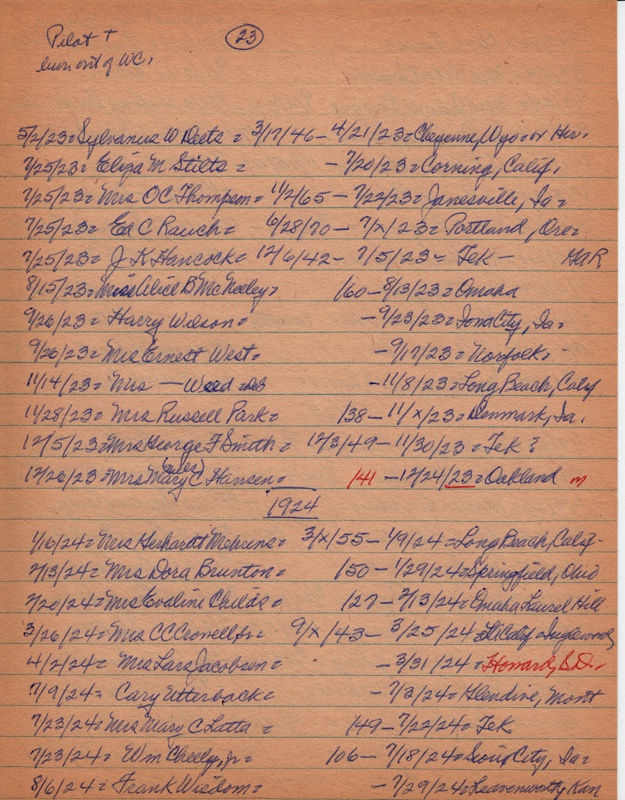 Pilot +
burs out of WC.
23
5/2/23 = Sylvanus W Deets = 3/17/46 - 4/21/23 = Cheyenne, Wyo or Her.
7/25/23 = Eliza M Stilts = - 7/20/23 = Corning, Calif.
7/25/23 = Mrs OC Thompson = 1/2/65 - 7/22/23 = Janesville, Ia =
7/25/23 = Ed C Rauch = 6/28/70 - 7/x/23 = Portland, Ore =
7/25/23 = J K Hancock = 12/6/42 - 7/5/23 = Tek - GAR
8/15/23 = Miss Alice B McNeeley = 160 - 8/13/23 = Omaha
9/26/23 = Harry Wilson = - 9/23/23 = Iowa City, Ia =
9/26/23 = Mrs Ernest West = - 9/17/23 = Norfolk -
11/14/23 = Mrs — Weed = - 11/8/23 = Long Beach, Calif
11/28/23 = Mrs Russell Park = 138 - 11/x/23 = Denmark, Ia.
12/5/23 = Mrs George F Smith = 12/3/49 - 11/30/23 = Tek =
12/26/23 = Mrs Mary C Hansen = 141 - 12/24/23 = Oakland m
1924
1/16/24 = Mrs Gerhardt Mehrens = 3/x/55 - 1/9/24 = Long Beach, Calif -
2/13/24 = Mrs Dora Brunton = 150 - 1/29/24 = Springfield, Ohio
2/20/24 = Mrs Evaline Childs = 127 - 2/13/24 = Omaha Laurel Hill
3/26/24 = Mrs CC Crowell, Jr = 9/x/43 - 3/25/24 = Calif = Inglewood
4/2/24 = Mrs Lars Jacobsen = - 3/31/24 = Howard, S.D.
7/9/24 = Cary Utterback = - 7/3/24 = Glendive, Mont
7/23/24 = Mrs Mary C Latta = 149 - 7/22/24 = Tek
7/23/24 = Wm Cheely, Jr = 106 - 7/18/24 = Sioux City, Ia =
8/6/24 = Frank Wisdom = - 7/29/24 = Leavenworth, Kan